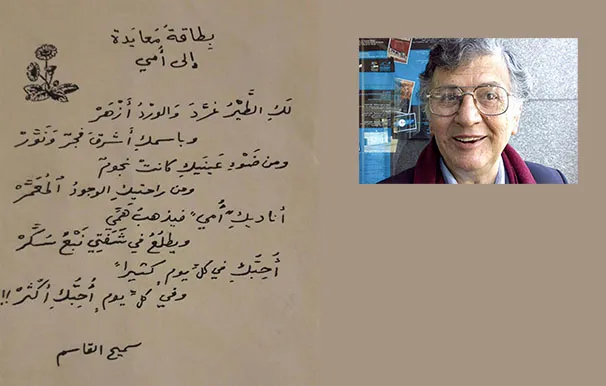 بطاقة معايدة
إلى أمي
لَكِ الطَّيْرُ غرَّدَ وَالورْدُ أزْهَرْ
وباسمكِ أشرقَ فجرٌ وَنَوَّرْ
ومن ضَوْءِ عينيكِ كانت نجومٌ
ومن راحتيكِ الوجودُ المُعَمَّرْ
أناديكِ "أُمِّي" فيذهبُ همِّي
ويطلعُ في شَفَتِي نَبْعُ سكَّرْ
أُحبُّكِ في كلِّ يوم كثيراً
وفي كلِّ يومٍ أُحبُّكِ أكْثَرْ!!
سميح القاسم